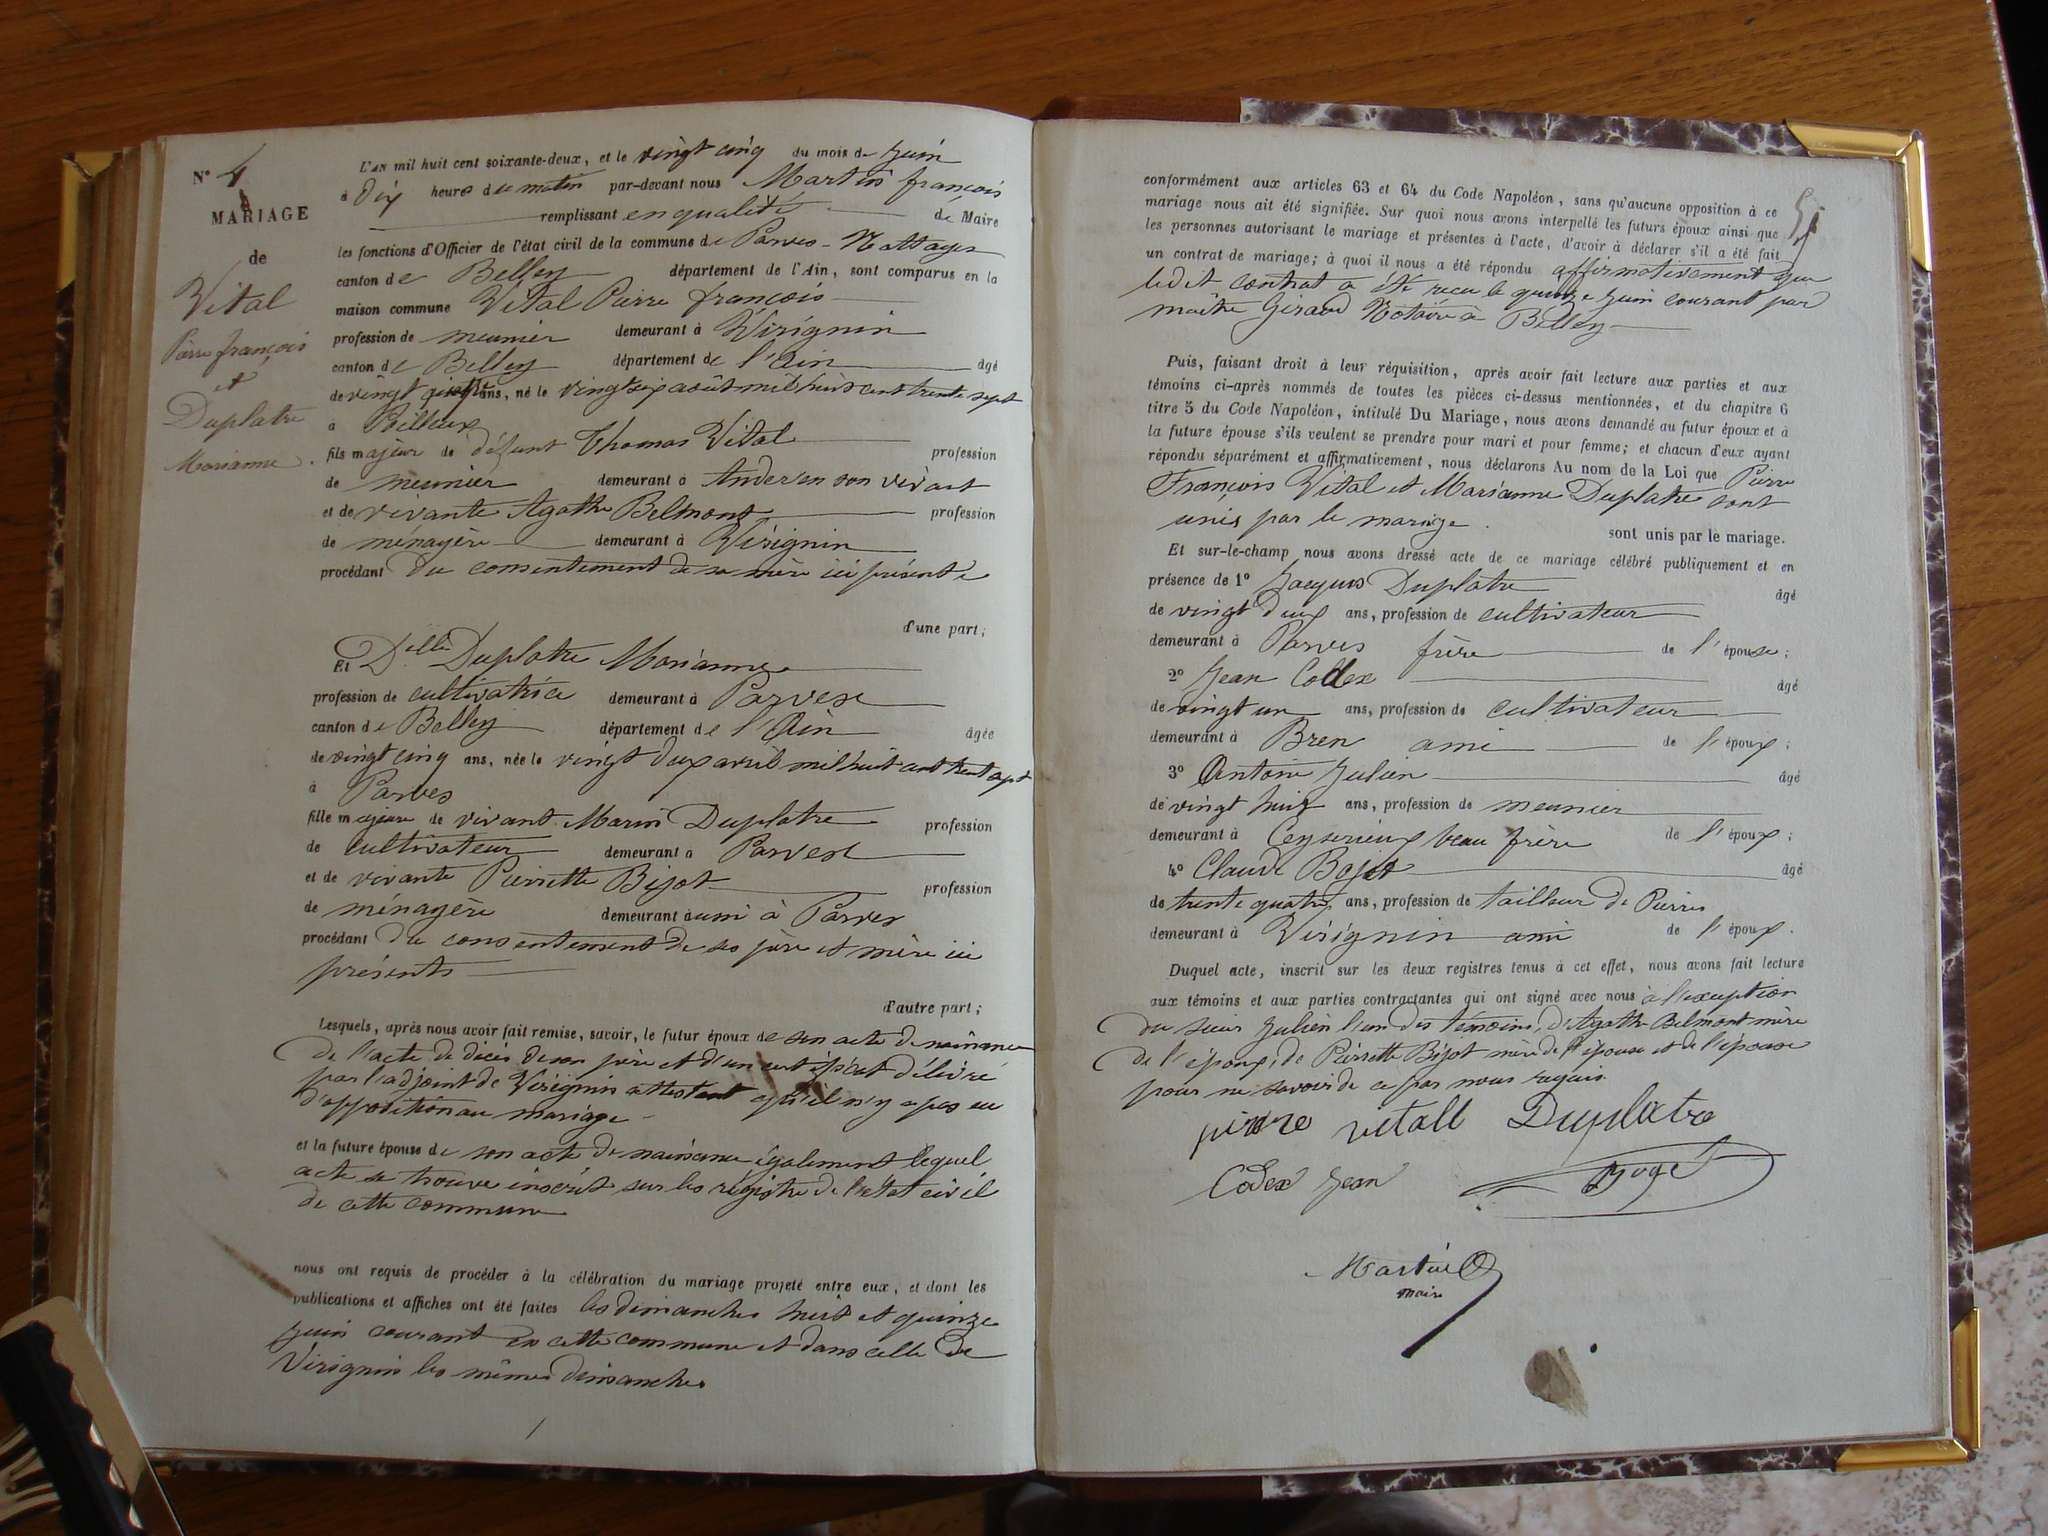 N° 4
MARIAGE
de
Vital
Pierre françois
et
Duplatre
Marianne.
L'AN mil huit cent soixante-deux, et le vingt cinq du mois de Juin
à dix heures du matin par-devant nous Martin françois
remplissant en qualité de Maire
les fonctions d'Officier de l'état civil de la commune de Parves-Nattages
canton de Belley département de l'Ain, sont comparus en la
maison commune Vital Pierre françois
profession de meunier demeurant à Virignin
canton de Belley département de l'Ain âgé
de vingt quatre ans, né le vingt six août mil huit cent trente sept
à
fils majeur de défunt Thomas Vital profession
de meunier demeurant à Andert en son vivant
et de vivante Agathe Belmont profession
de ménagère demeurant à Virignin
procédant du consentement de sa mère ici présente
d'une part;
Et Delle Duplatre Marianne
profession de cultivatrice demeurant à Parves
canton de Belley département de l'Ain âgée
de vingt cinq ans, née le vingt deux avril mil huit cent trent sept
à Parves
fille majeure de vivant Marin Duplatre profession
de cultivateur demeurant à Parves
et de vivante Pierrette Bijot profession
de ménagère demeurant aussi à Parves
procédant du consentement de ses père et mère ici
présents
d'autre part;
Lesquels, après nous avoir fait remise, savoir, le futur époux de son acte de naissance
de l'acte de décès de son père et d'un certificat délivré
par l'adjoint de Virignin attestant qu'il n'y a pas eu
d'opposition au mariage
et la future épouse de son acte de naissance également lequel
acte se trouve inscrit sur les registre de l'état civil
de cette commune
nous ont requis de procéder à la célébration du mariage projeté entre eux, et dont les
publications et affiches ont été faites les dimanches huit et quinze
Juin courant en cette commune et dans celle de
Virignin les mêmes dimanches
conformément aux articles 63 et 64 du Code Napoléon, sans qu'aucune opposition à ce
mariage nous ait été signifiée. Sur quoi nous avons interpellé les futurs époux ainsi que
les personnes autorisant le mariage et présentes à l'acte, d'avoir à déclarer s'il a été fait
un contrat de mariage; à quoi il nous a été répondu affirmativement que
ledit contrat a été recu le quinze Juin courant par
maître Giraud Notaire à Belley
Puis, faisant droit à leur réquisition, après avoir fait lecture aux parties et aux
témoins ci-après nommés de toutes les pièces ci-dessus mentionnées, et du chapitre 6
titre 5 du Code Napoléon, intitulé Du Mariage, nous avons demandé au futur époux et à
la future épouse s'ils veulent se prendre pour mari et pour femme; et chacun d'eux ayant
répondu séparément et affirmativement, nous déclarons Au nom de la Loi que Pierre
François Vital et Marianne Duplatre sont
unis par le mariage. sont unis par le mariage.
Et sur-le-champ nous avons dressé acte de ce mariage célébré publiquement et en
présence de 1° Jacques Duplatre âgé
de vingt deux ans, profession de cultivateur
demeurant à Parves frère de l'épouse;
2° Jean Codex âgé
de vingt un ans, profession de cultivateur
demeurant à Bren ami de l'époux;
3° Antoine Julien âgé
de vingt huit ans, profession de meunier
demeurant à Ceyzerieux beau frère de l'époux;
4° Claude Bojet âgé
de trente quatre ans, profession de tailleur de Pierres
demeurant à Virignin ami de l'époux.
Duquel acte, inscrit sur les deux registres tenus à cet effet, nous avons fait lecture
aux témoins et aux parties contractantes qui ont signé avec nous à l'exception
du sieur Julien l'un des témoins, d'Agathe Belmont mère
de l'époux, de Pierrette Bijot mère de l'épouse et de l'épouse
pour ne savoir de ce par nous requis.
pierre vitall Duplatre
Codex Jean Boget
Martin
maire